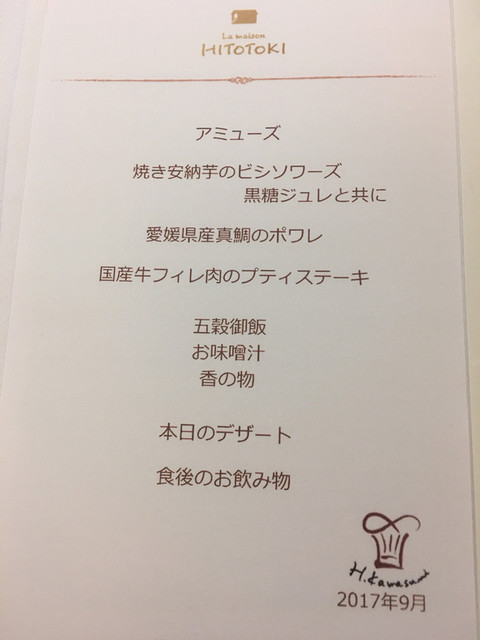 La maison
HITOTOKI
アミューズ
焼き安納芋のビシソワーズ
黒糖ジュレと共に
愛媛県産真鯛のポワレ
国産牛フィレ肉のプティステーキ
五穀御飯
お味噌汁
香の物
本日のデザート
食後のお飲み物
H.Kawasumi
2017年9月